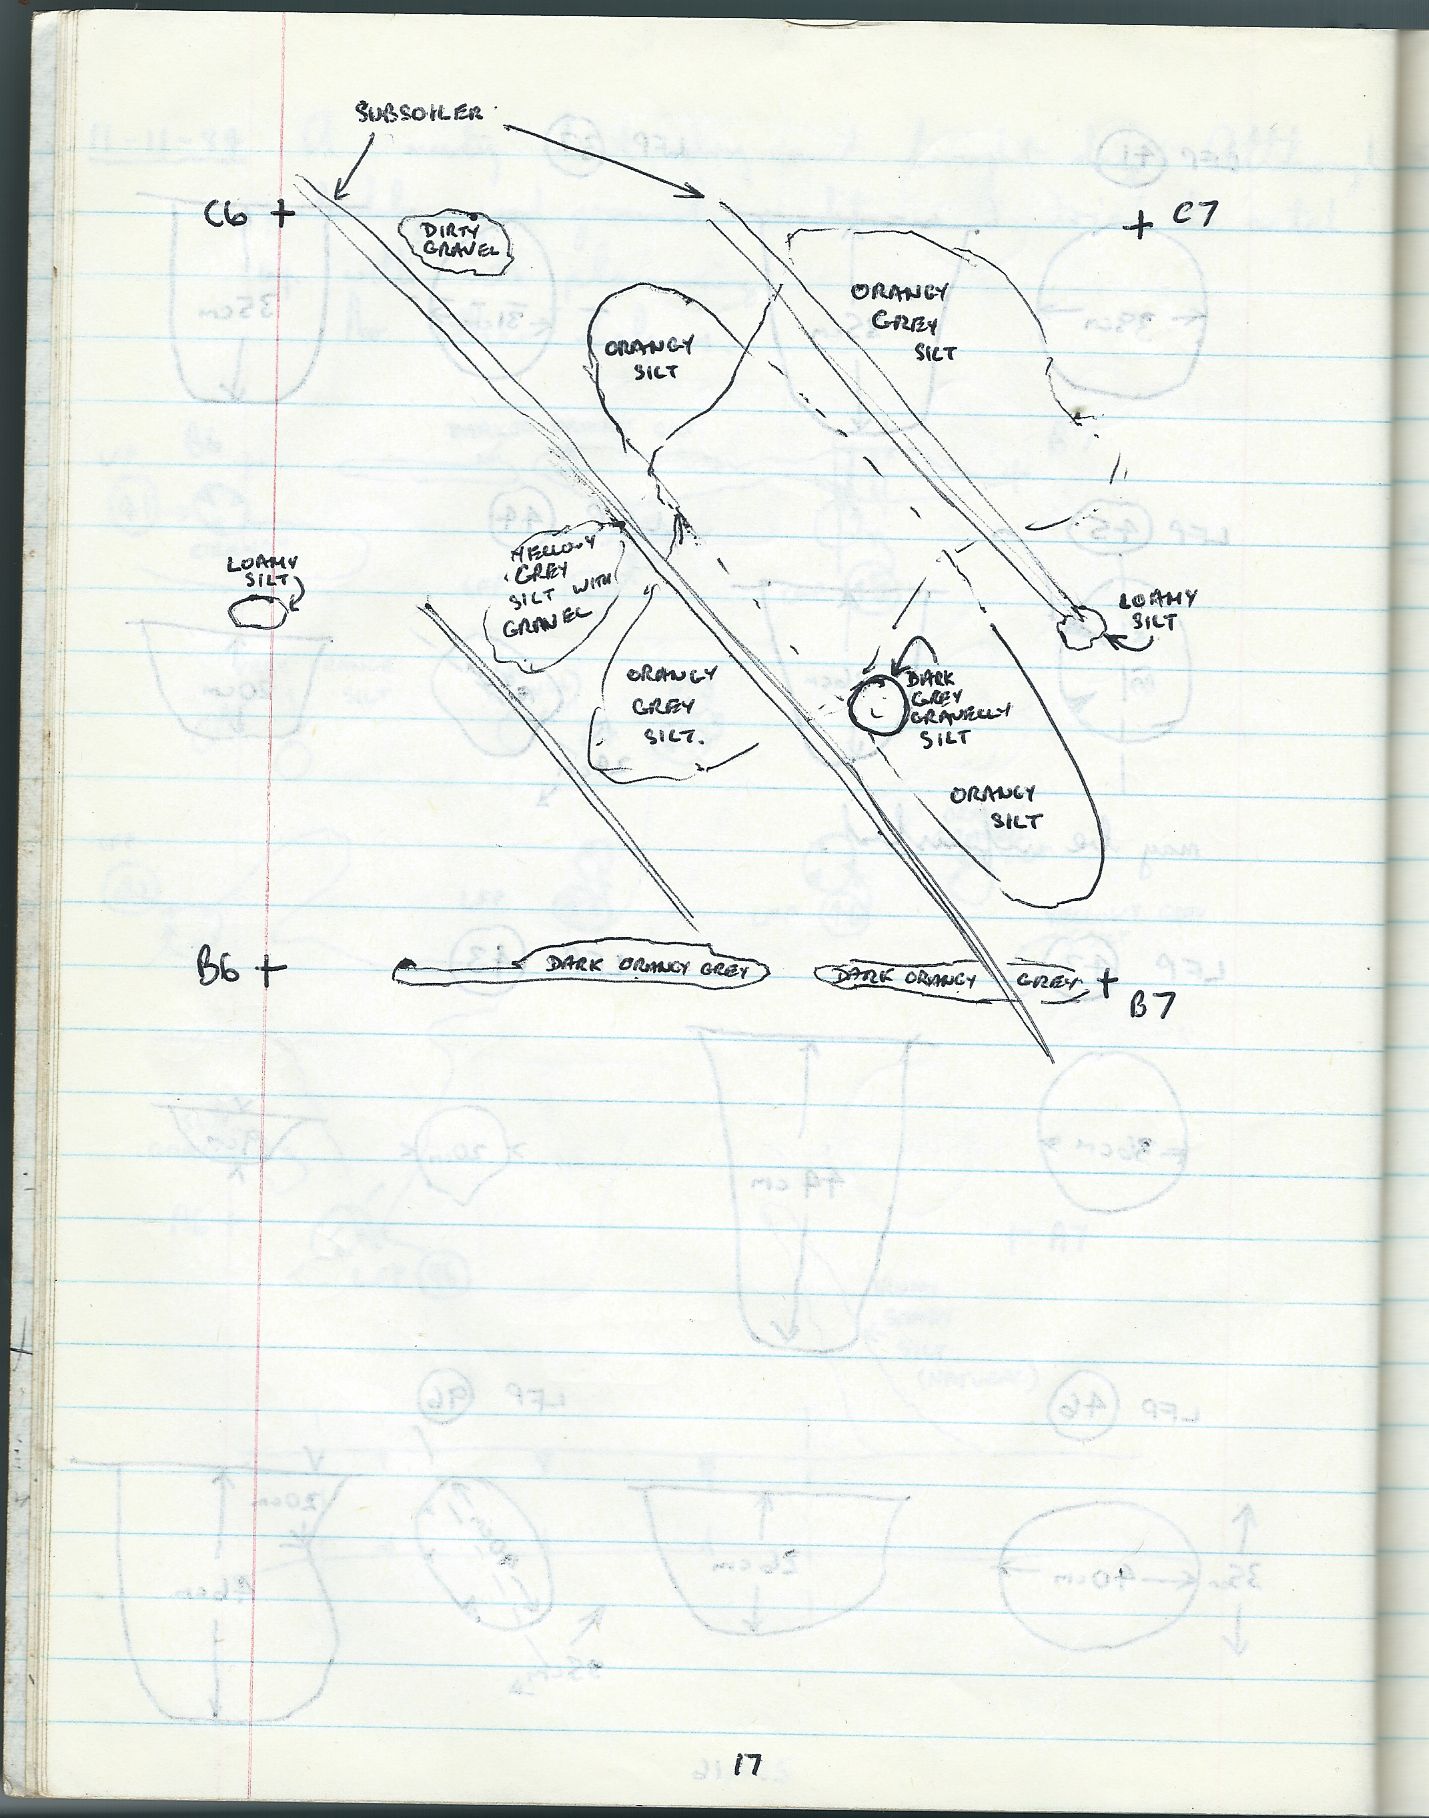 SUBSOILER
C6 +
+ C7
DIRTY
GRAVEL
ORANGY
GREY
SILT
ORANGY
SILT
YELLOWY
GREY
SILT WITH
GRAVEL
LOAMY
SILT
LOAMY
SILT
ORANGY
GREY
SILT.
DARK
GREY
GRAVELLY
SILT
ORANGY
SILT
B6 +
DARK ORANGY GREY
DARK ORANGY GREY
+
B7
17